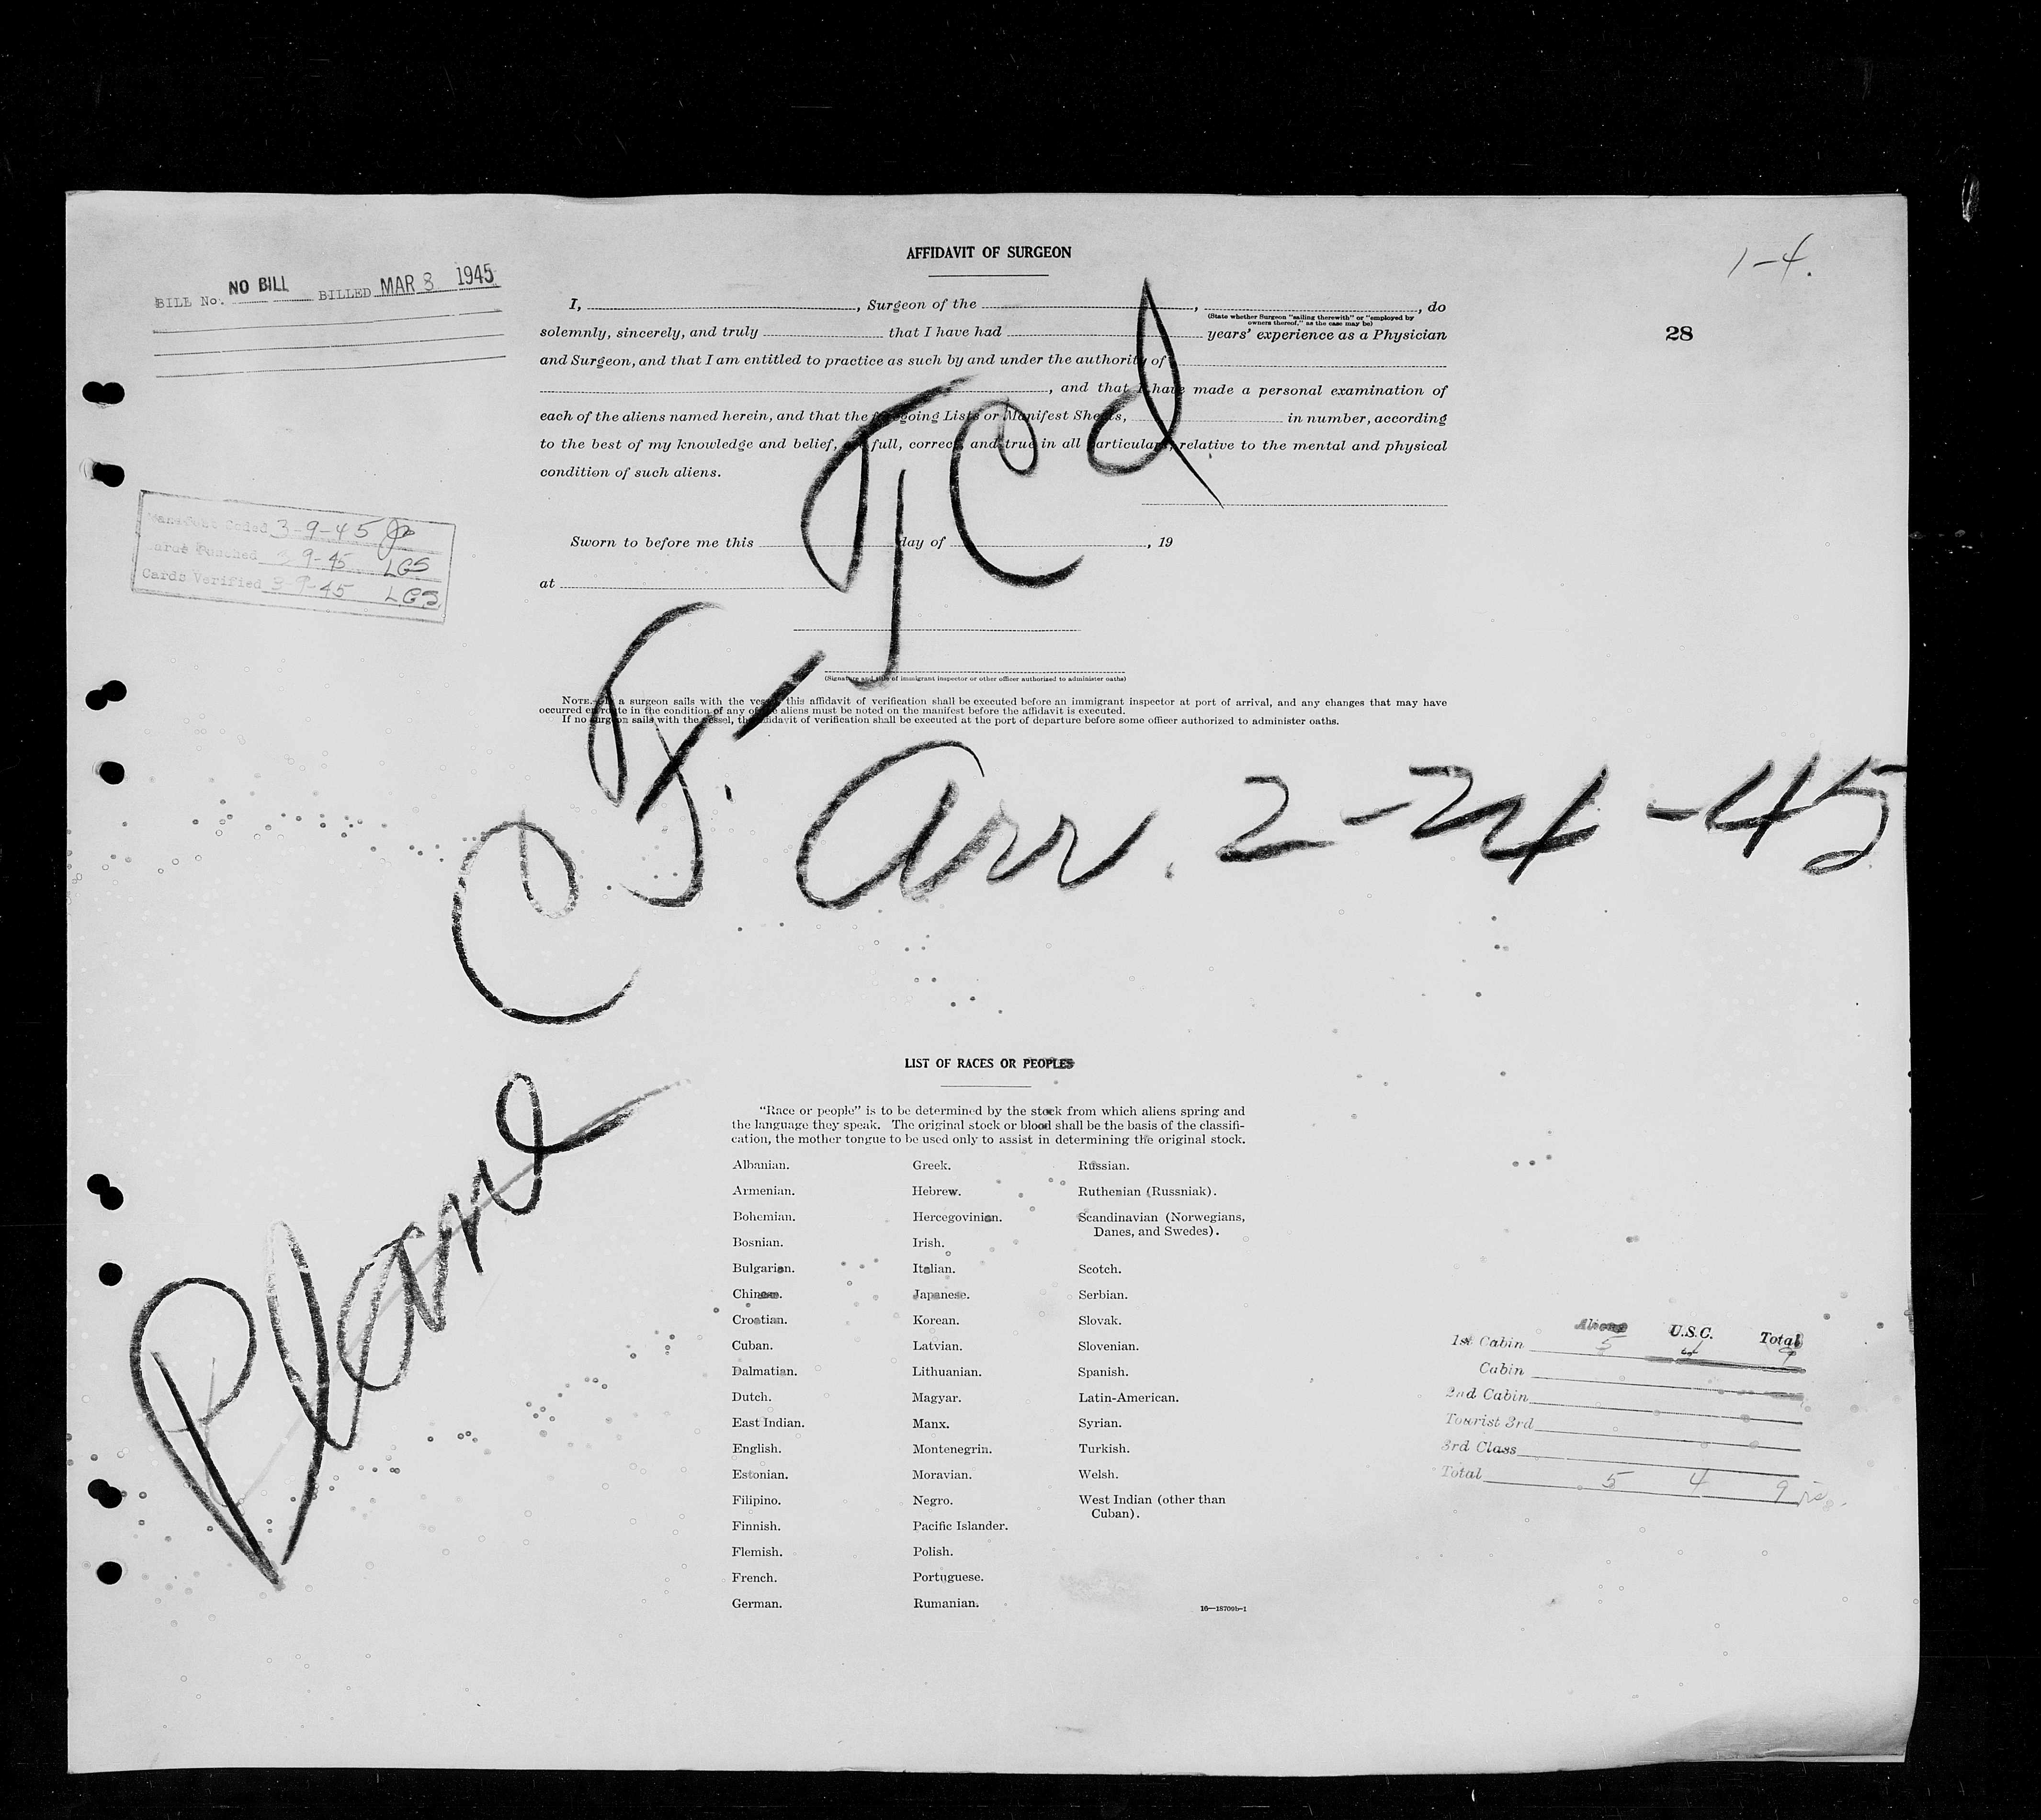 AFFIDAVIT OF SURGEON
1-4.
BILL No. NO BILL BILLED MAR 8 1945
28
I, , Surgeon of the , , do
(State whether Surgeon "sailing therewith" or "employed by
owners thereof," as the case may be)
solemnly, sincerely, and truly that I have had years' experience as a Physician
and Surgeon, and that I am entitled to practice as such by and under the authority of
, and that I have made a personal examination of
each of the aliens named herein, and that the foregoing Lists or Manifest Sheets, in number, according
to the best of my knowledge and belief, are full, correct, and true in all particulars, relative to the mental and physical
condition of such aliens.
Manifest Coded 3-9-45
Cards Punched 3-9-45 LGS
Cards Verified 3-9-45 LGS
Sworn to before me this day of , 19
at
(Signature and title of immigrant inspector or other officer authorized to administer oaths)
NOTE.—If a surgeon sails with the vessel, this affidavit of verification shall be executed before an immigrant inspector at port of arrival, and any changes that may have
occurred en route in the condition of any of the aliens must be noted on the manifest before the affidavit is executed.
If no surgeon sails with the vessel, the affidavit of verification shall be executed at the port of departure before some officer authorized to administer oaths.
Plane CF-TCd
Arr. 2-24-45
LIST OF RACES OR PEOPLES
"Race or people" is to be determined by the stock from which aliens spring and
the language they speak. The original stock or blood shall be the basis of the classifi-
cation, the mother tongue to be used only to assist in determining the original stock.
Albanian. Greek. Russian.
Armenian. Hebrew. Ruthenian (Russniak).
Bohemian. Hercegovinian. Scandinavian (Norwegians,
Danes, and Swedes).
Bosnian. Irish.
Bulgarian. Italian. Scotch.
Chinese. Japanese. Serbian.
Croatian. Korean. Slovak.
Cuban. Latvian. Slovenian.
Dalmatian. Lithuanian. Spanish.
Dutch. Magyar. Latin-American.
East Indian. Manx. Syrian.
English. Montenegrin. Turkish.
Estonian. Moravian. Welsh.
Filipino. Negro. West Indian (other than
Cuban).
Finnish. Pacific Islander.
Flemish. Polish.
French. Portuguese.
German. Rumanian.
16—18709b-1
Aliens U.S.C. Total
1st Cabin 5 4 9
Cabin
2nd Cabin
Tourist 3rd
3rd Class
Total 5 4 9